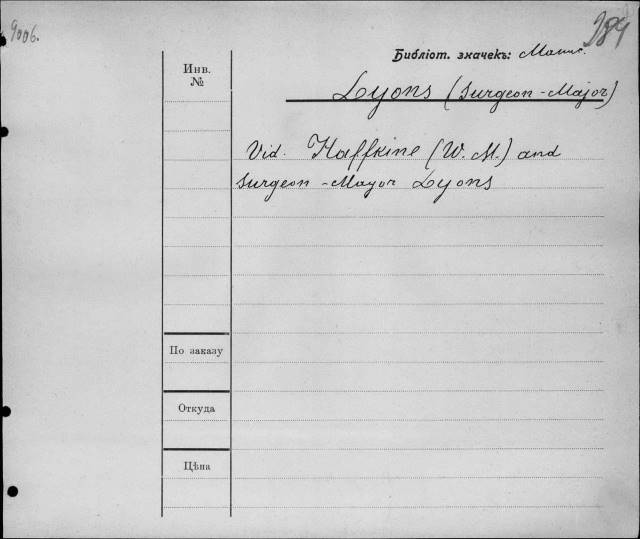 9006.
284
Библіот. значекъ:
Инв.
№
Lyons (Surgeon-Major)
Vid. Haffkine (W. M.) and
Surgeon-Mayor Lyons
По заказу
Откуда
Цѣна